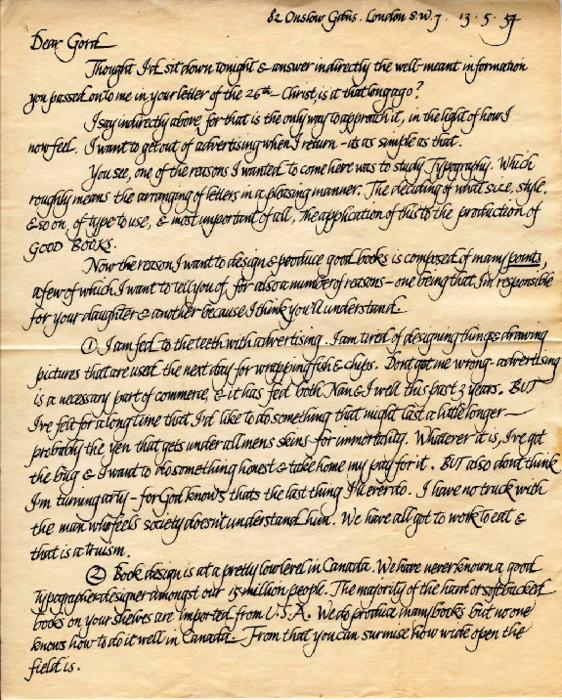 82 Onslow Gdns. London S.W.7. 13.5.57
Dear Gord
Thought I'd sit down tonight & answer indirectly the well-meant information
you passed onto me in your letter of the 26th - Christ, is it that long ago?
I say indirectly above, for that is the only way to approach it, in the light of how I
now feel. I want to get out of advertising when I return - its as simple as that.
You see, one of the reasons I wanted to come here was to study Typography. Which
roughly means the arranging of letters in a pleasing manner. The deciding of what size, style,
& so on, of type to use, & most important of all, the application of this to the production of
GOOD BOOKS.
Now the reason I want to design & produce good books is composed of many points,
a few of which I want to tell you of, for also a number of reasons - one being that I'm responsible
for your daughter & another because I think you'll understand.
① I am fed to the teeth with advertising. I am tired of designing things & drawing
pictures that are used the next day for wrapping fish & chips. Dont get me wrong - advertising
is a necessary part of commerce, & it has fed both Nan & I well this past 3 years. BUT
I've felt for a long time that I'd like to do something that might last a little longer —
probably the yen that gets under all mens skins - for immortality. Whatever it is, I've got
the bug & I want to do something honest & take home my pay for it. BUT also dont think
I'm turning arty - for God knows thats the last thing I'll ever do. I have no truck with
the man who feels society doesn't understand him. We have all got to work to eat &
that is a truism.
② Book design is at a pretty low level in Canada. We have never known a good
Typographer-designer amongst our 15 million people. The majority of the hard or soft backed
books on your shelves are imported from U.S.A. We do produce many books but no one
knows how to do it well in Canada — From that you can surmise how wide open the
field is.